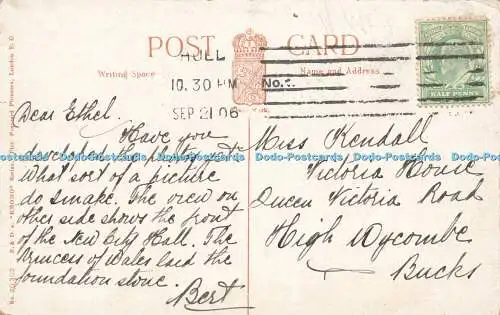 POST CARD
Writing Space
Name and Address
HULL
10.30 PM
SEP 21 06
No.
HALF PENNY
Dear Ethel.
Have you
developed the plate yet
What sort of a picture
do I make. The view on
other side shows the front
of the New City Hall. The
Princess of Wales laid the
foundation stone.
Bert
Miss Kendall
Victoria House
Queen Victoria Road
High Wycombe
Bucks
Dodo-Postcards Dodo-Postcards Dodo-Postcards Dodo-Postcards